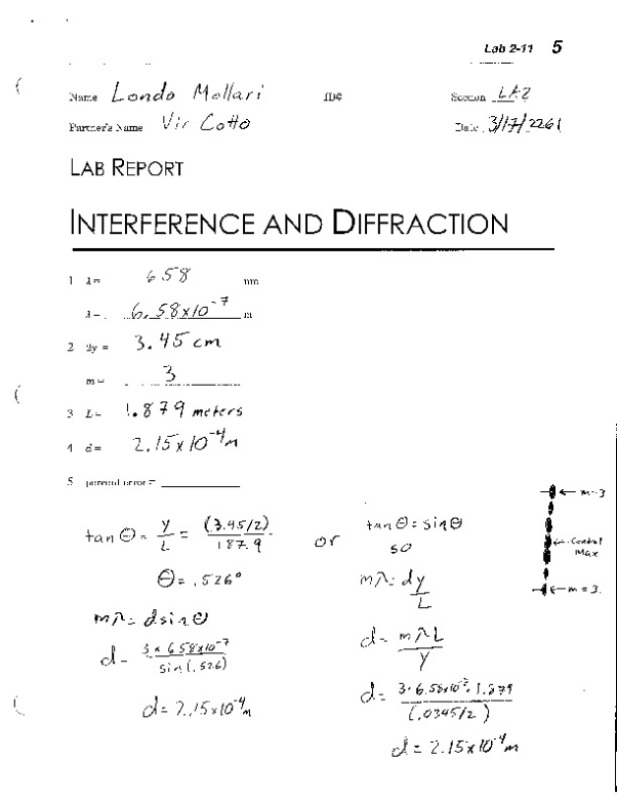 Lab 2-11 5
Name Londo Mollari
Section LAZ
Partner's Name Vir Cotto
Date 3/17/2261
LAB REPORT
INTERFERENCE AND DIFFRACTION
1 λ= 658 nm
λ= 6.58x10⁻⁷ m
2 2y = 3.45 cm
m = 3
3 L= 1.879 meters
4 d= 2.15x10⁻⁴m
5 percent error =
tan Θ = y/L = (3.45/2)/187.9
Θ = .526°
mλ = d sin Θ
d = 3 x 6.58x10⁻⁷/sin(.526)
d = 2.15x10⁻⁴m
or
tan Θ = sin Θ
so
mλ = dy/L
d = mλL/y
d = 3·6.58x10⁻⁷·1.879/(.0345/2)
d = 2.15x10⁻⁴m
← m=3
← Central
Max
← m=3